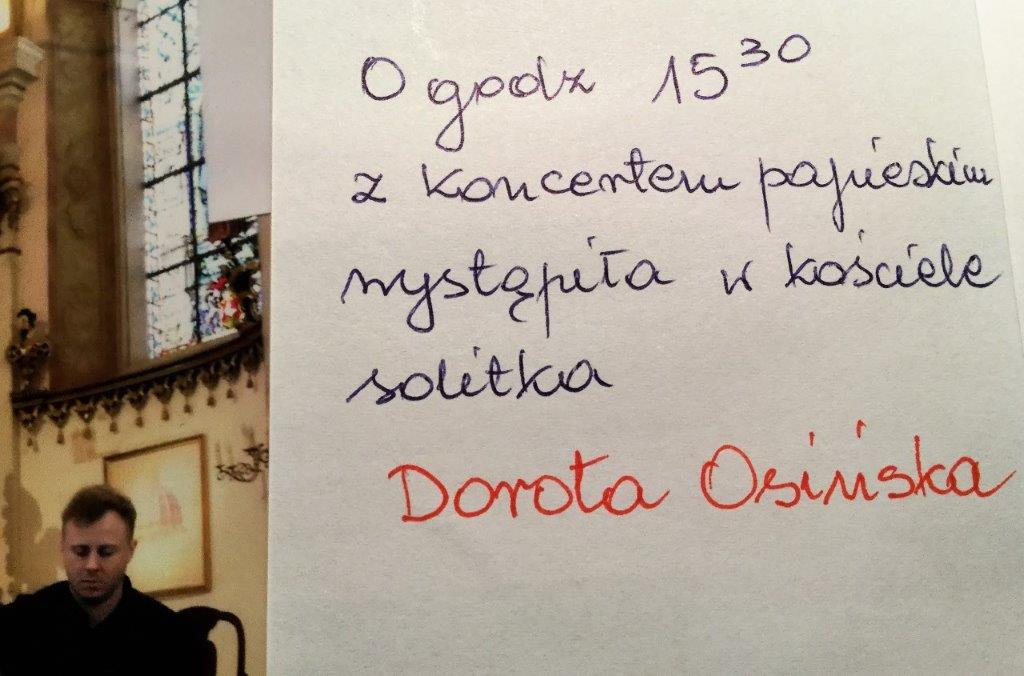 O godz 15³⁰
z koncertem papieskim
wystąpiła w kościele
solitka
Dorota Osińska